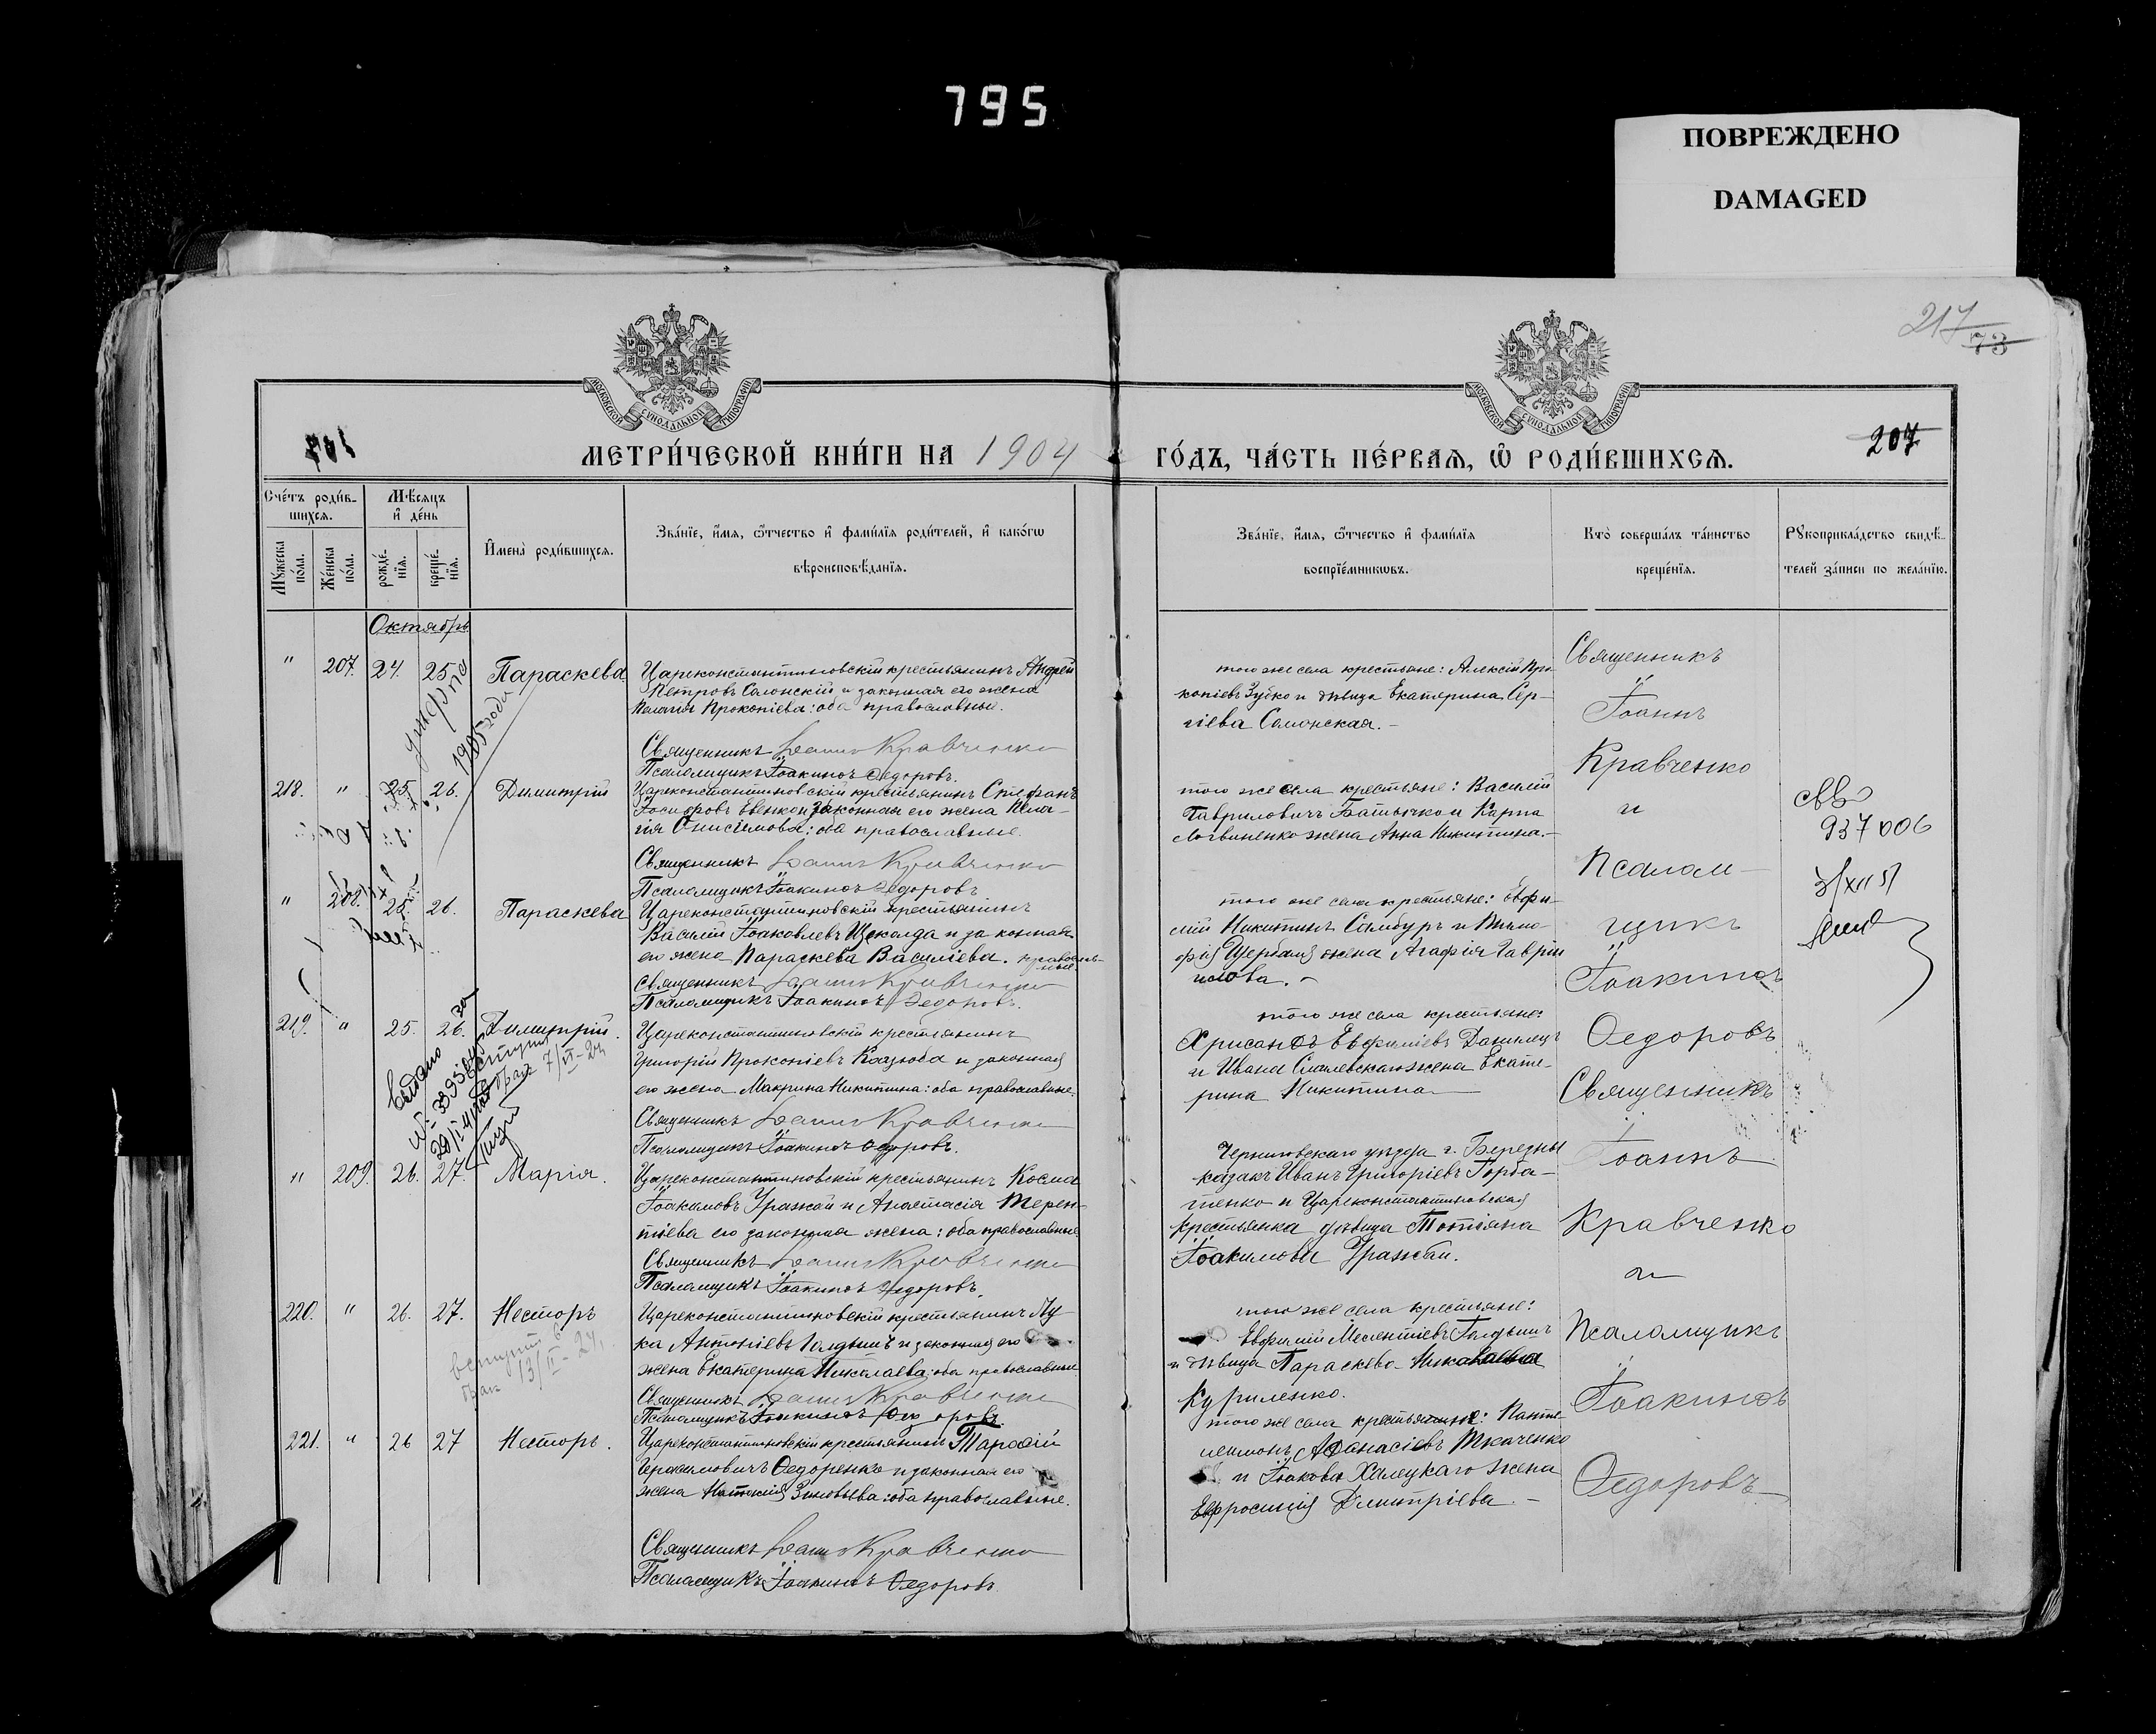 795
ПОВРЕЖДЕНО
DAMAGED
217
73
МОСКОВСКОЙ СУНОДАЛЬНОЙ ТИПОГРАФІИ
МОСКОВСКОЙ СУНОДАЛЬНОЙ ТИПОГРАФІИ
МЕТРИ́ЧЕСКОЙ КНИ́ГИ НА 1904
ГО́ДЪ, ЧА́СТЬ ПЕ́РВАѦ, Ѡ҆ РОДИ́ВШИХСѦ.
207
Сче́тъ роди́в-
шихсѧ.
Мѣ́сѧцъ
и҆ де́нь
Мꙋ́жеска
по́ла.
Же́нска
по́ла.
рожде́-
нїѧ.
креще́-
нїѧ.
И҆мена̀ роди́вшихсѧ.
Зва́нїе, и҆́мѧ, ѻ҆́тчество и҆ фами́лїѧ роди́телей, и҆ како́гѡ
вѣроисповѣ́данїѧ.
Зва́нїе, и҆́мѧ, ѻ҆́тчество и҆ фами́лїѧ
воспрїе́мникѡвъ.
Кто̀ соверша́лъ та́инство
креще́нїѧ.
Рꙋкоприкла́дство свидѣ́-
телей за́писи по жела́нїю.
Октябрь
" 207. 24. 25. Параскева
Цареконстантиновскій крестьянинъ Андрей
Петровъ Салонскій и законная его жена
Пелагія Прокопіева: оба православные.
Священникъ Іоаннъ Кравченко
Псаломщикъ Іоакимъ Ѳедоровъ.
того же села крестьяне: Алексій Про-
копіевъ Зубко и дѣвица Екатерина Сер-
гіева Салонская.-
1905 года
218. " 25. 26. Димитрій
Цареконстантиновскій крестьянинъ Стефанъ
Іосифовъ Евенко и законная его жена Пела-
гія Онисимова: оба православные
Священникъ Іоаннъ Кравченко
Псаломщикъ Іоакимъ Ѳедоровъ
того же села крестьяне: Василій
Гавриловичъ Батычко и Карпа
Логвиненко жена Анна Никитина.-
937006
" 208. 25. 26. Параскева
Цареконстантиновскій крестьянинъ
Василій Іаковлевъ Щеколда и законная
его жена Параскева Василіева. православ-
ные
Священникъ Іоаннъ Кравченко
Псаломщикъ Іоакимъ Ѳедоровъ.
того же села крестьяне: Евфи-
мій Никитинъ Самбуръ и Тимо-
фія Щербаня жена Агафія Гаврі
илова.-
219. " 25. 26. Димитрій.
Цареконстантиновскій крестьянинъ
Григорій Прокопіевъ Кацюба и законная
его жена Макрина Никитина: оба православные.
Священникъ Іоаннъ Кравченко
Псаломщикъ Іоакимъ Ѳедоровъ.
того же села крестьяне:
Хрисанфъ Евфиміевъ Данилецъ
и Ивана Смилевскаго жена Екате-
рина Никитина
" 209. 26. 27. Марія.
Цареконстантиновскій крестьянинъ Косма
Іоакимовъ Уражай и Анастасія Терен-
тіева его законная жена: оба православные
Священникъ Іоаннъ Кравченко
Псаломщикъ Іоакимъ Ѳедоровъ.
Черниговскаго уѣзда г. Березны
казакъ Иванъ Григоріевъ Горба-
тенко и Цареконстантиновская
крестьянка дѣвица Татіана
Іоакимова Уражай.
220. " 26. 27. Несторъ
Цареконстантиновскій крестьянинъ Лу
ка Антоніевъ Голдышъ и законная его
жена Екатерина Николаева: оба православные
Священникъ Іоаннъ Кравченко
Псаломщикъ Іоакимъ Ѳедоровъ.
того же села крестьяне:
Евфимій Мелентіевъ Голдышъ
и дѣвица Параскева Николаевна
Куриленко.
221. " 26 27 Несторъ.
Цареконстантиновскій крестьянинъ Тарасій
Герасимовичъ Ѳедоренко и законная его
жена Наталія Зиновьева: оба православные.
Священникъ Іоаннъ Кравченко
Псаломщикъ Іоакимъ Ѳедоровъ.
того же села крестьяне: Панте-
леимонъ Аѳанасіевъ Ткаченко
и Іакова Халецкаго жена
Евфросинія Димитріева.-
Священникъ
Іоаннъ
Кравченко
и
Псалом-
щикъ
Іоакимъ
Ѳедоровъ
Священникъ
Іоаннъ
Кравченко
и
Псаломщикъ
Іоакимъ
Ѳедоровъ